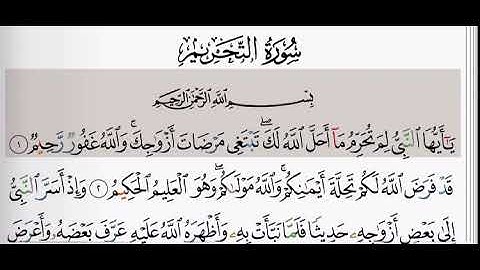 سُورَةُ التَّحْرِيمِ
بِسْمِ اللَّهِ الرَّحْمَٰنِ الرَّحِيمِ
يَٰٓأَيُّهَا ٱلنَّبِيُّ لِمَ تُحَرِّمُ مَآ أَحَلَّ ٱللَّهُ لَكَۖ تَبْتَغِى مَرْضَاتَ أَزْوَٰجِكَۚ وَٱللَّهُ غَفُورٌ رَّحِيمٌ ١
قَدْ فَرَضَ ٱللَّهُ لَكُمْ تَحِلَّةَ أَيْمَٰنِكُمْۚ وَٱللَّهُ مَوْلَىٰكُمْۖ وَهُوَ ٱلْعَلِيمُ ٱلْحَكِيمُ ٢ وَإِذْ أَسَرَّ ٱلنَّبِيُّ
إِلَىٰ بَعْضِ أَزْوَٰجِهِۦ حَدِيثًا فَلَمَّا نَبَّأَتْ بِهِۦ وَأَظْهَرَهُ ٱللَّهُ عَلَيْهِ عَرَّفَ بَعْضَهُۥ وَأَعْرَضَ